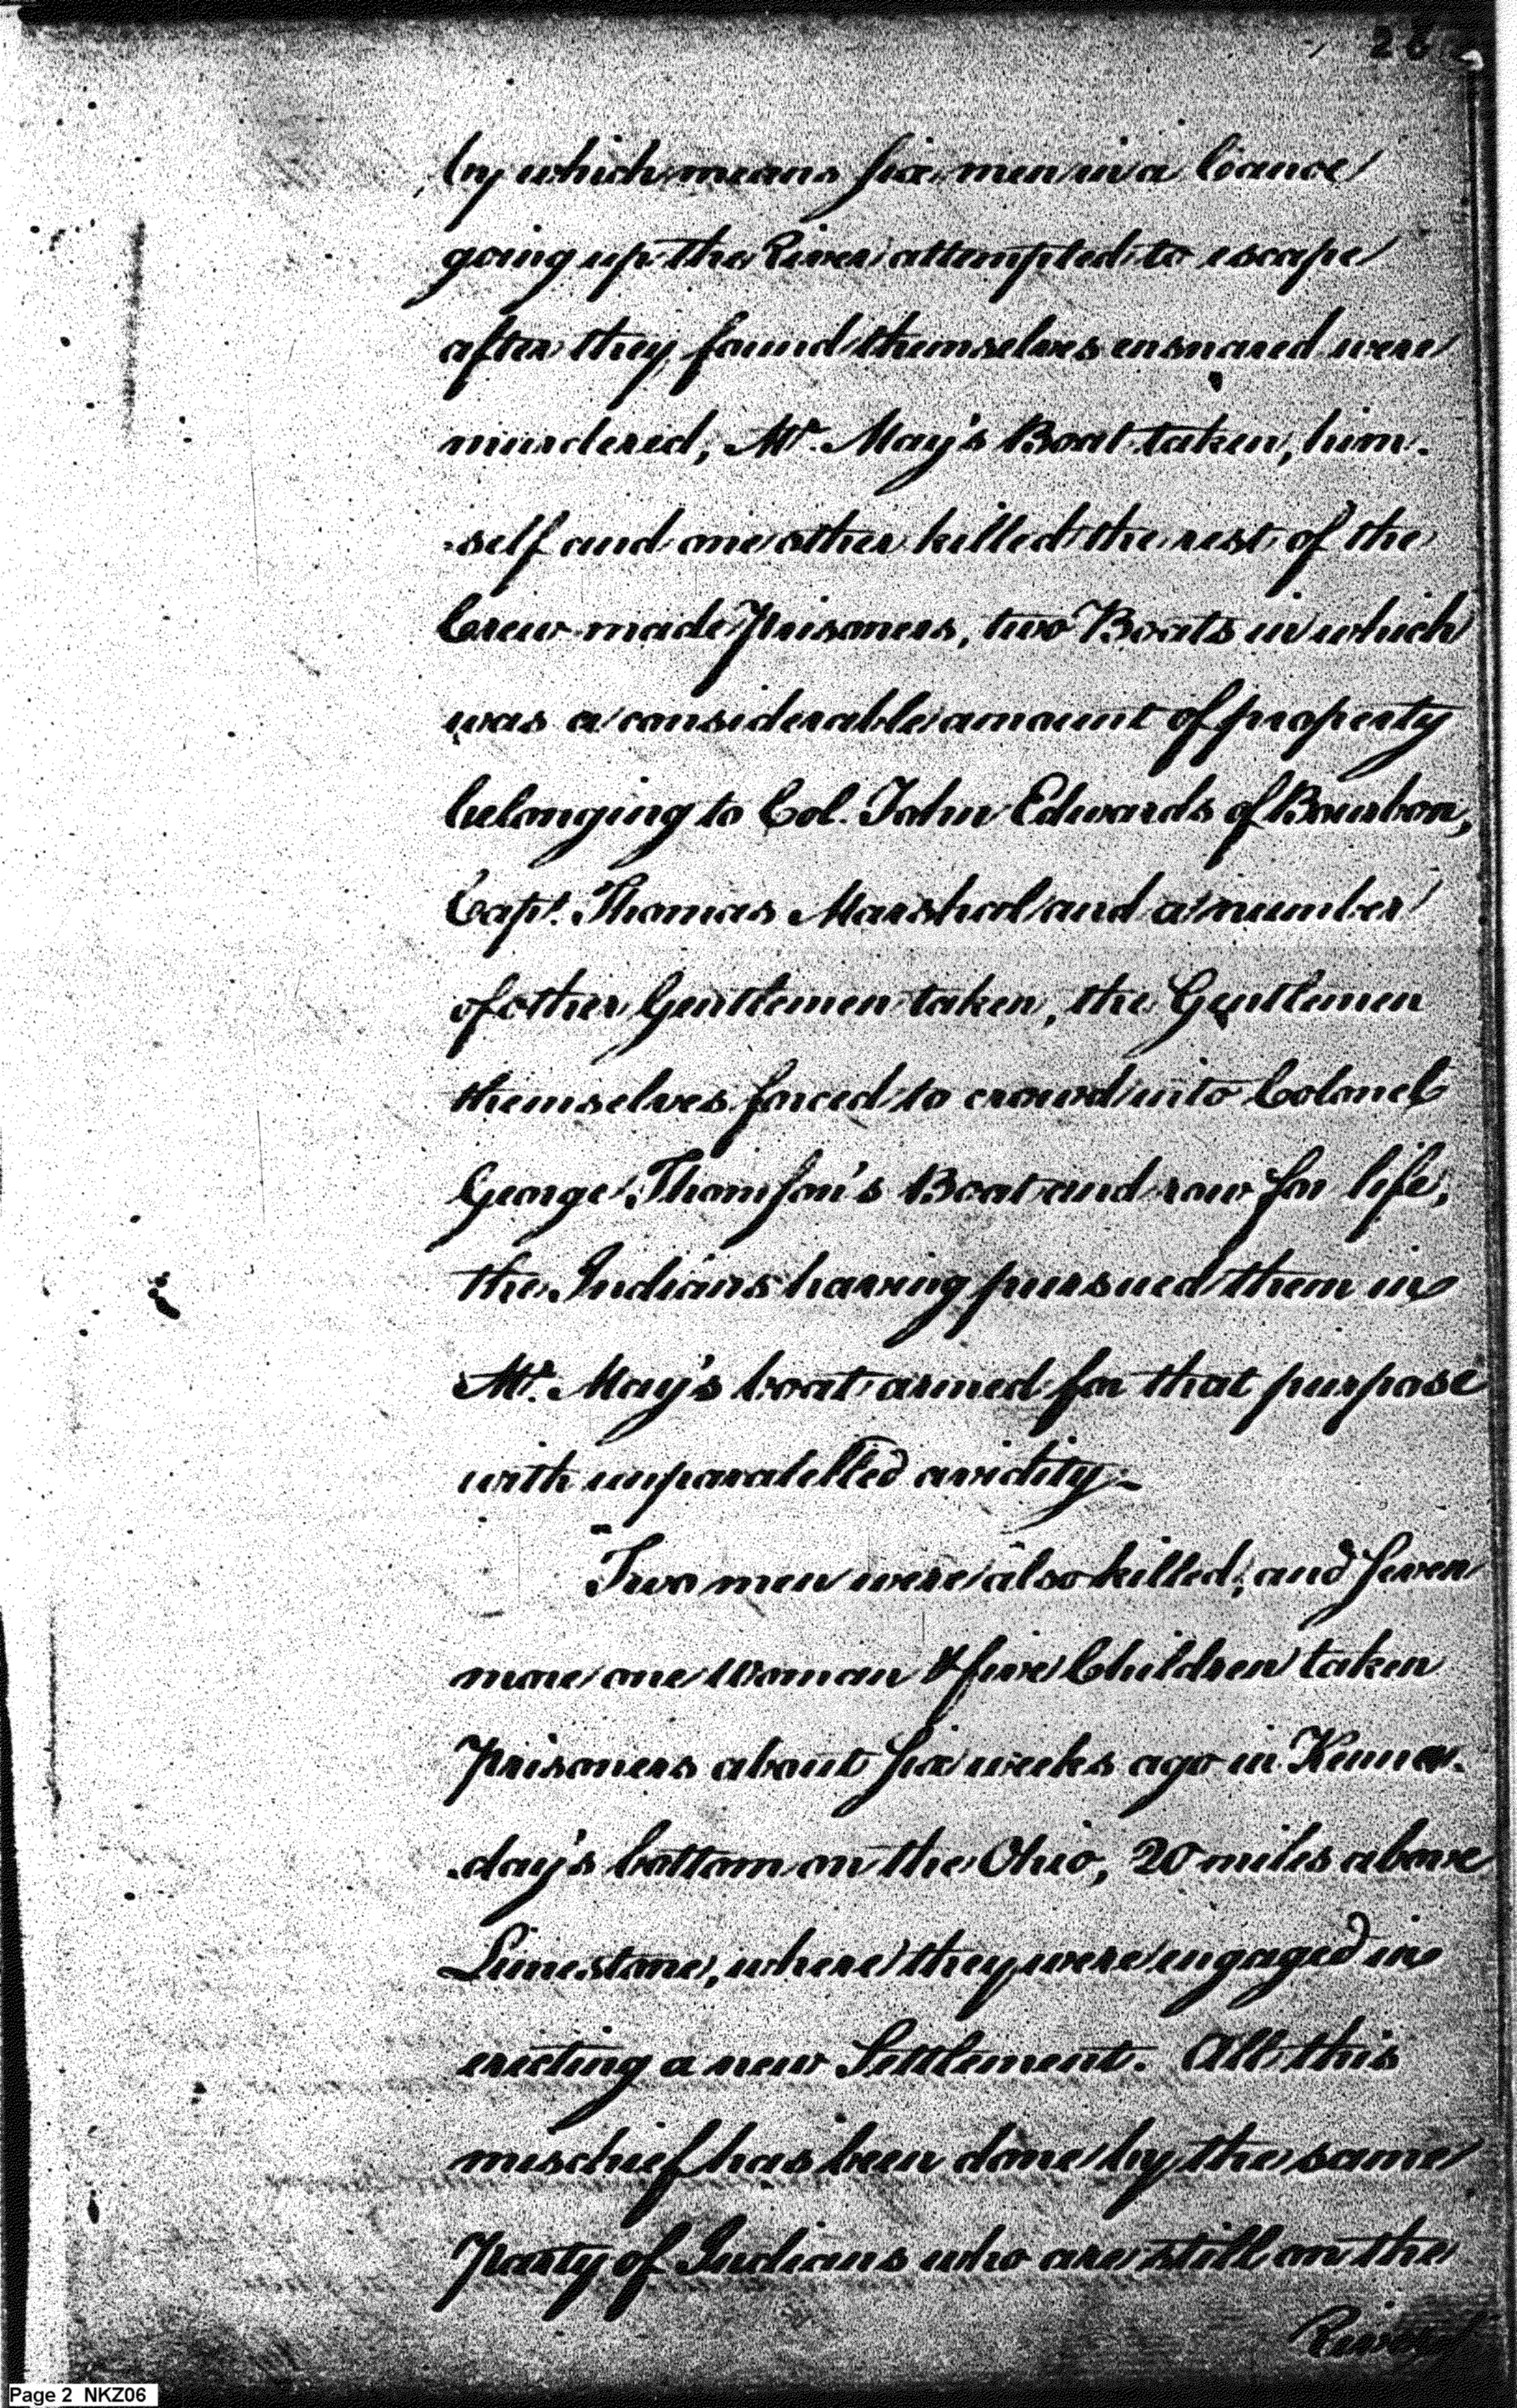 26
by which means six men in a Canoe
going up the River attempted to escape
after they found themselves ensnared were
murdered, Mr. May's Boat taken, him-
-self and one other killed the rest of the
Crew made Prisoners, two Boats in which
was a considerable amount of property
belonging to Col. John Edwards of Bourbon,
Capt. Thomas Marshal and a number
of other Gentlemen taken, the Gentlemen
themselves forced to crowd into Colonel
George Thomson's Boat and row for life,
the Indians having pursued them in
Mr. May's boat armed for that purpose
with unparalelled avidity.-
"Two men were also killed, and seven
more one Woman & five Children taken
Prisoners about six weeks ago in Kenna-
-day's bottom on the Ohio, 20 miles above
Limestone, where they were engaged in
erecting a new Settlement. All this
mischief has been done by the same
Party of Indians who are still on the
River
Page 2 NKZ06